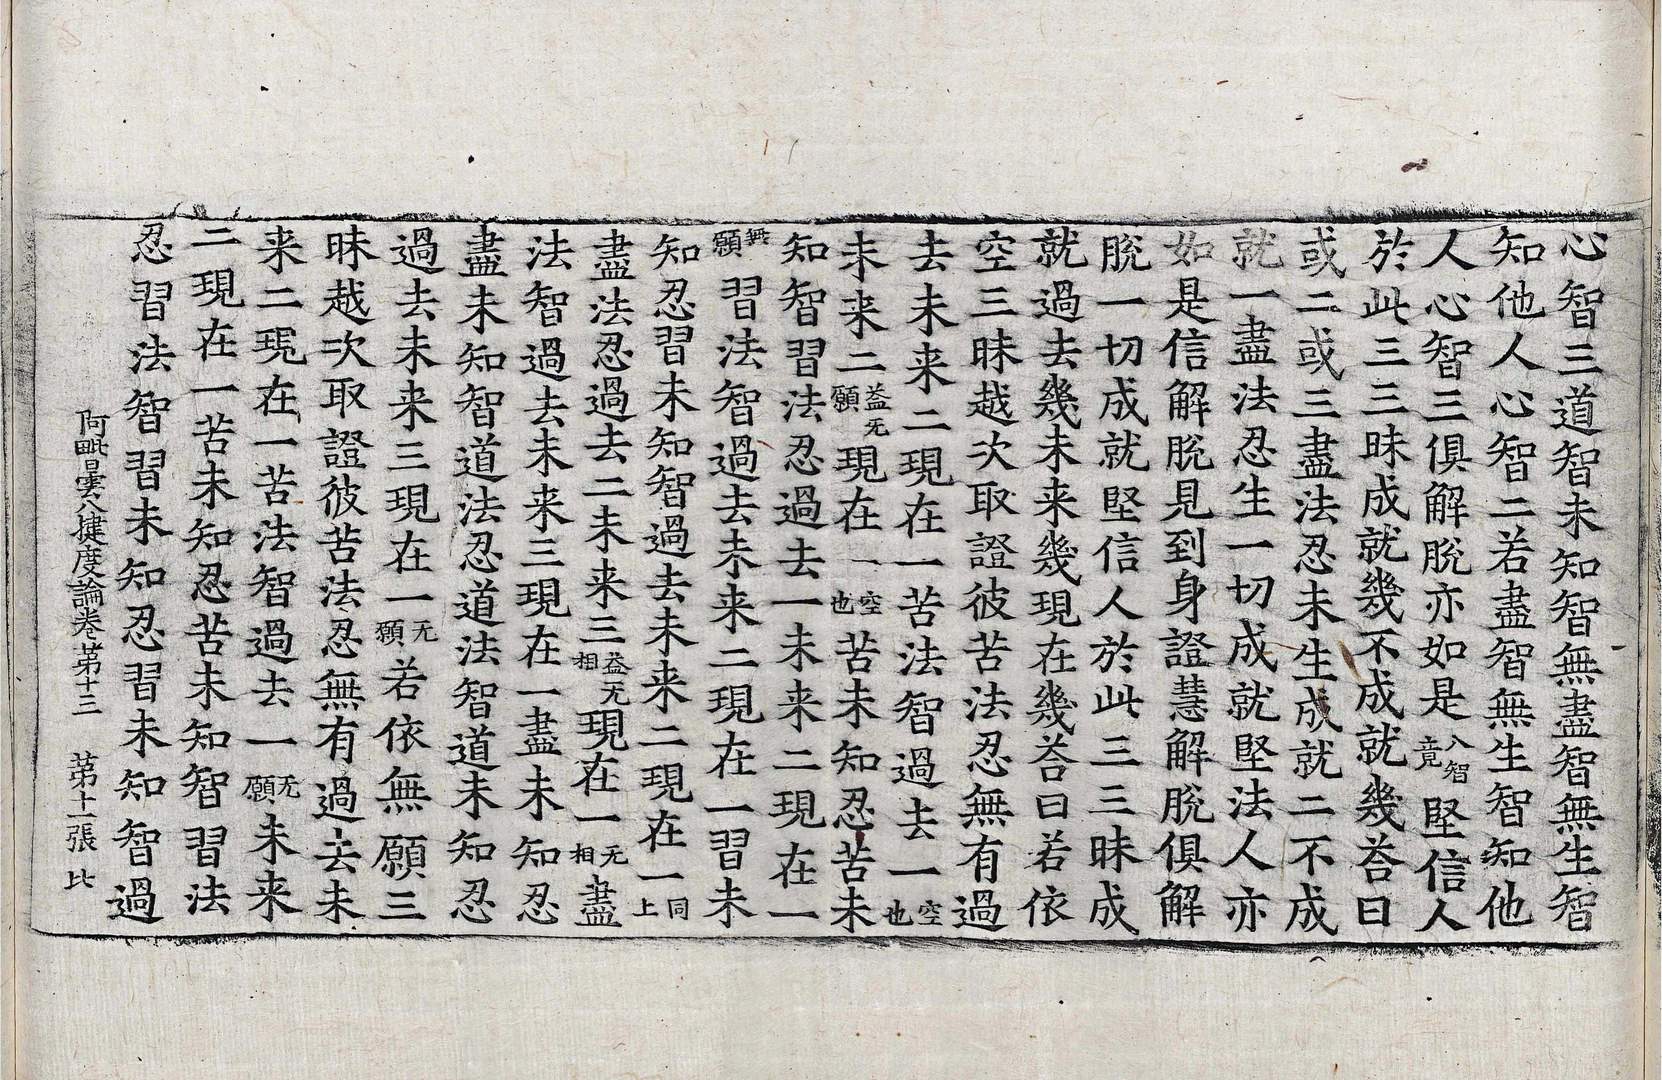 心智三道智未知智無盡智無生智
知他人心智二若盡智無生智知他
人心智三俱解脫亦如是八智竟堅信人
於此三三昧成就幾不成就幾荅曰
或二或三盡法忍未生成就二不成
就一盡法忍生一切成就堅法人亦
如是信解脫見到身證慧解脫俱解
脫一切成就堅信人於此三三昧成
就過去幾未来幾現在幾荅曰若依
空三昧越次取證彼苦法忍無有過
去未来二現在一苦法智過去一空也
未来二益无願現在一空也苦未知忍苦未
知智習法忍過去一未来二現在一
無願習法智過去未来二現在一習未
知忍習未知智過去未来二現在一同上
盡法忍過去二未来三益无相現在一无相盡
法智過去未来三現在一盡未知忍
盡未知智道法忍道法智道未知忍
過去未来三現在一无願若依無願三
昧越次取證彼苦法忍無有過去未
来二現在一苦法智過去一无願未来
二現在一苦未知忍苦未知智習法
忍習法智習未知忍習未知智過
阿毗曇八揵度論卷第十三 第十一張 比